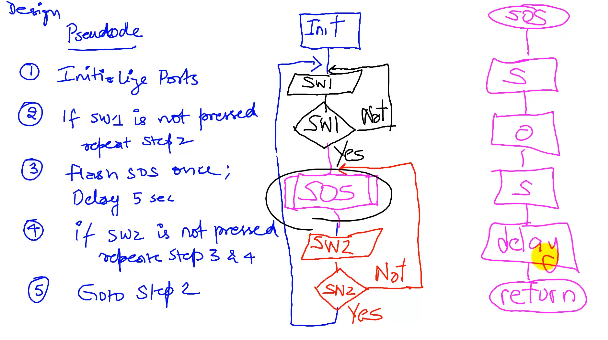 Design
Pseudode
① Initialize Ports
② If SW1 is not pressed
repeat step 2
③ flash SOS once;
Delay 5 sec
④ if SW2 is not pressed
repeate step 3 & 4
⑤ Goto Step 2
Init
SW1
SW1
Not
Yes
SOS
SW2
SW2
Not
Yes
SOS
S
O
S
delay
5
return